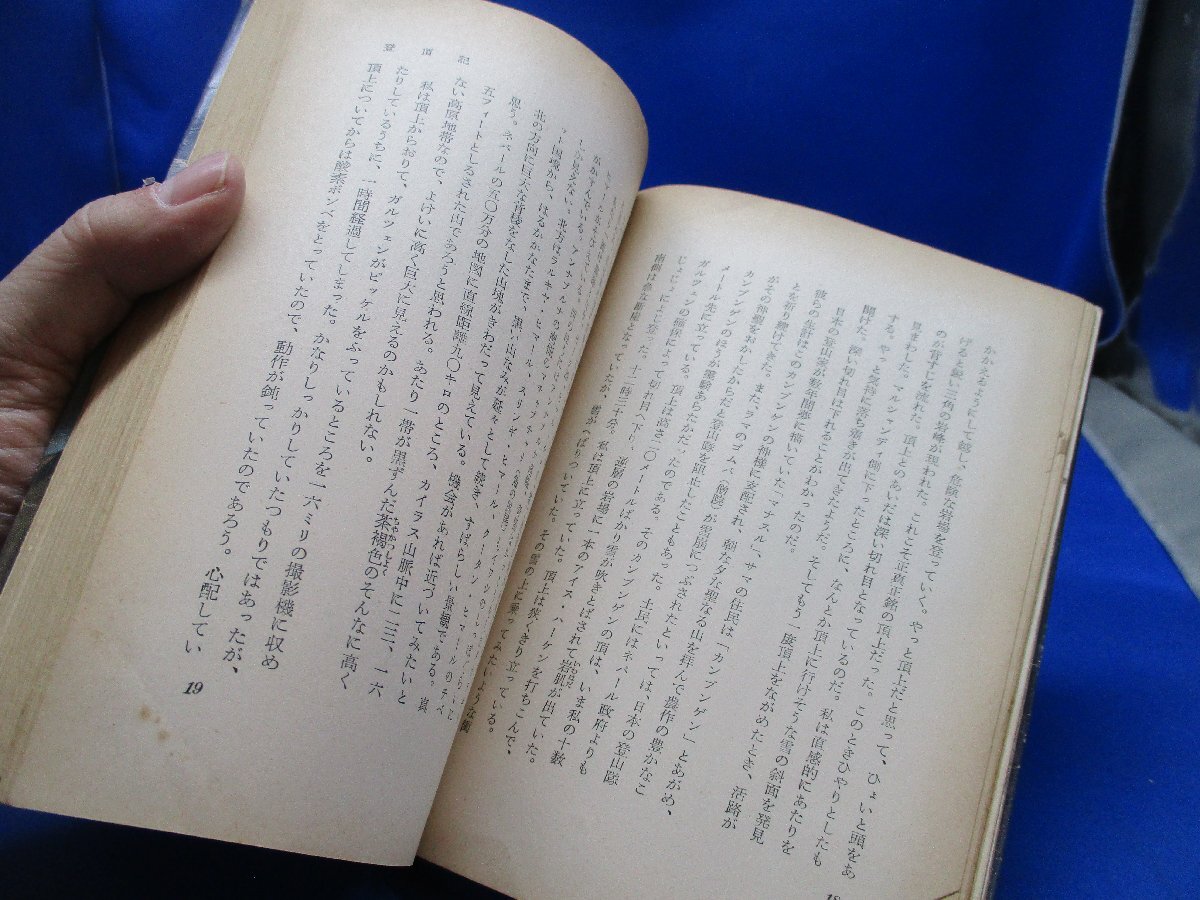 かかえるようにして越し、危険な岩場を登っていく。やっと頂上だと思って、ひょいと頭をあ
げると鋭い三角の岩峰が現われた。これこそ正真正銘の頂上だった。このときひやりとしたも
のが背すじを流れた。頂上とのあいだは深い切れ目となっているのだ。私は直感的にあたりを
見まわした。マルシャンディ側に下ったところに、なんとか頂上に行けそうな雪の斜面を発見
する。やっと気持に落ち着きが出てきたようだ。そしてもう一度頂上をながめたとき、活路が
開けた。深い切れ目は下れることがわかったのだ。
日本の登山家が数年間夢に描いていた「マナスル」、サマの住民は「カンブンゲン」とあがめ、
彼らの生計はこのカンブンゲンの神様に支配され、朝な夕な聖なる山を拝んで農作の豊かなこ
とを祈り続けてきた。また、ラマのゴムパ(僧院)が雪崩につぶされたといっては、日本の登山隊
がその神聖をおかしたからだと登山隊を阻止したこともあった。土民にはネパール政府よりも
カンブンゲンのほうが霊験あらたかだったのである。そのカンブンゲンの頂は、いま私の十数
メートル先に立っている。頂上は高さ二〇メートルばかり
ガルツェンの確保によって切れ目へ下り、逆層の岩場に一本のアイス・ハーケンを打ちこんで、
じょじょによじ登った。十二時三十分。私は頂上に立っていた。頂上は狭くきり立っている。
南側は急な断崖となっていたが、雪がへばりついていた。その雪の上に乗ってみたいような衝
18
ット国境から、はるかかなたまで、黒い山なみが延々として続き、すばらしい景観である。真
北の方向に巨大な背稜をなした山塊がきわだって見えている。機会があれば近づいてみたいと
思う。ネパールの五〇万分の地図に直線距離九〇キロのところ、カイラス山脈中に二三、一六
五フィートとしるされた山であろうと思われる。あたり一帯が黒ずんだ茶褐色のそんなに高く
ない高原地帯なので、よけいに高く巨大に見えるのかもしれない。
私は頂上からおりて、ガルツェンがピッケルをふっているところを一六ミリの撮影機に収め
たりしているうちに、一時間経過してしまった。かなりしっかりしていたつもりではあったが、
頂上についてからは酸素ボンベをとっていたので、動作が鈍っていたのであろう。心配してい
登頂記
19